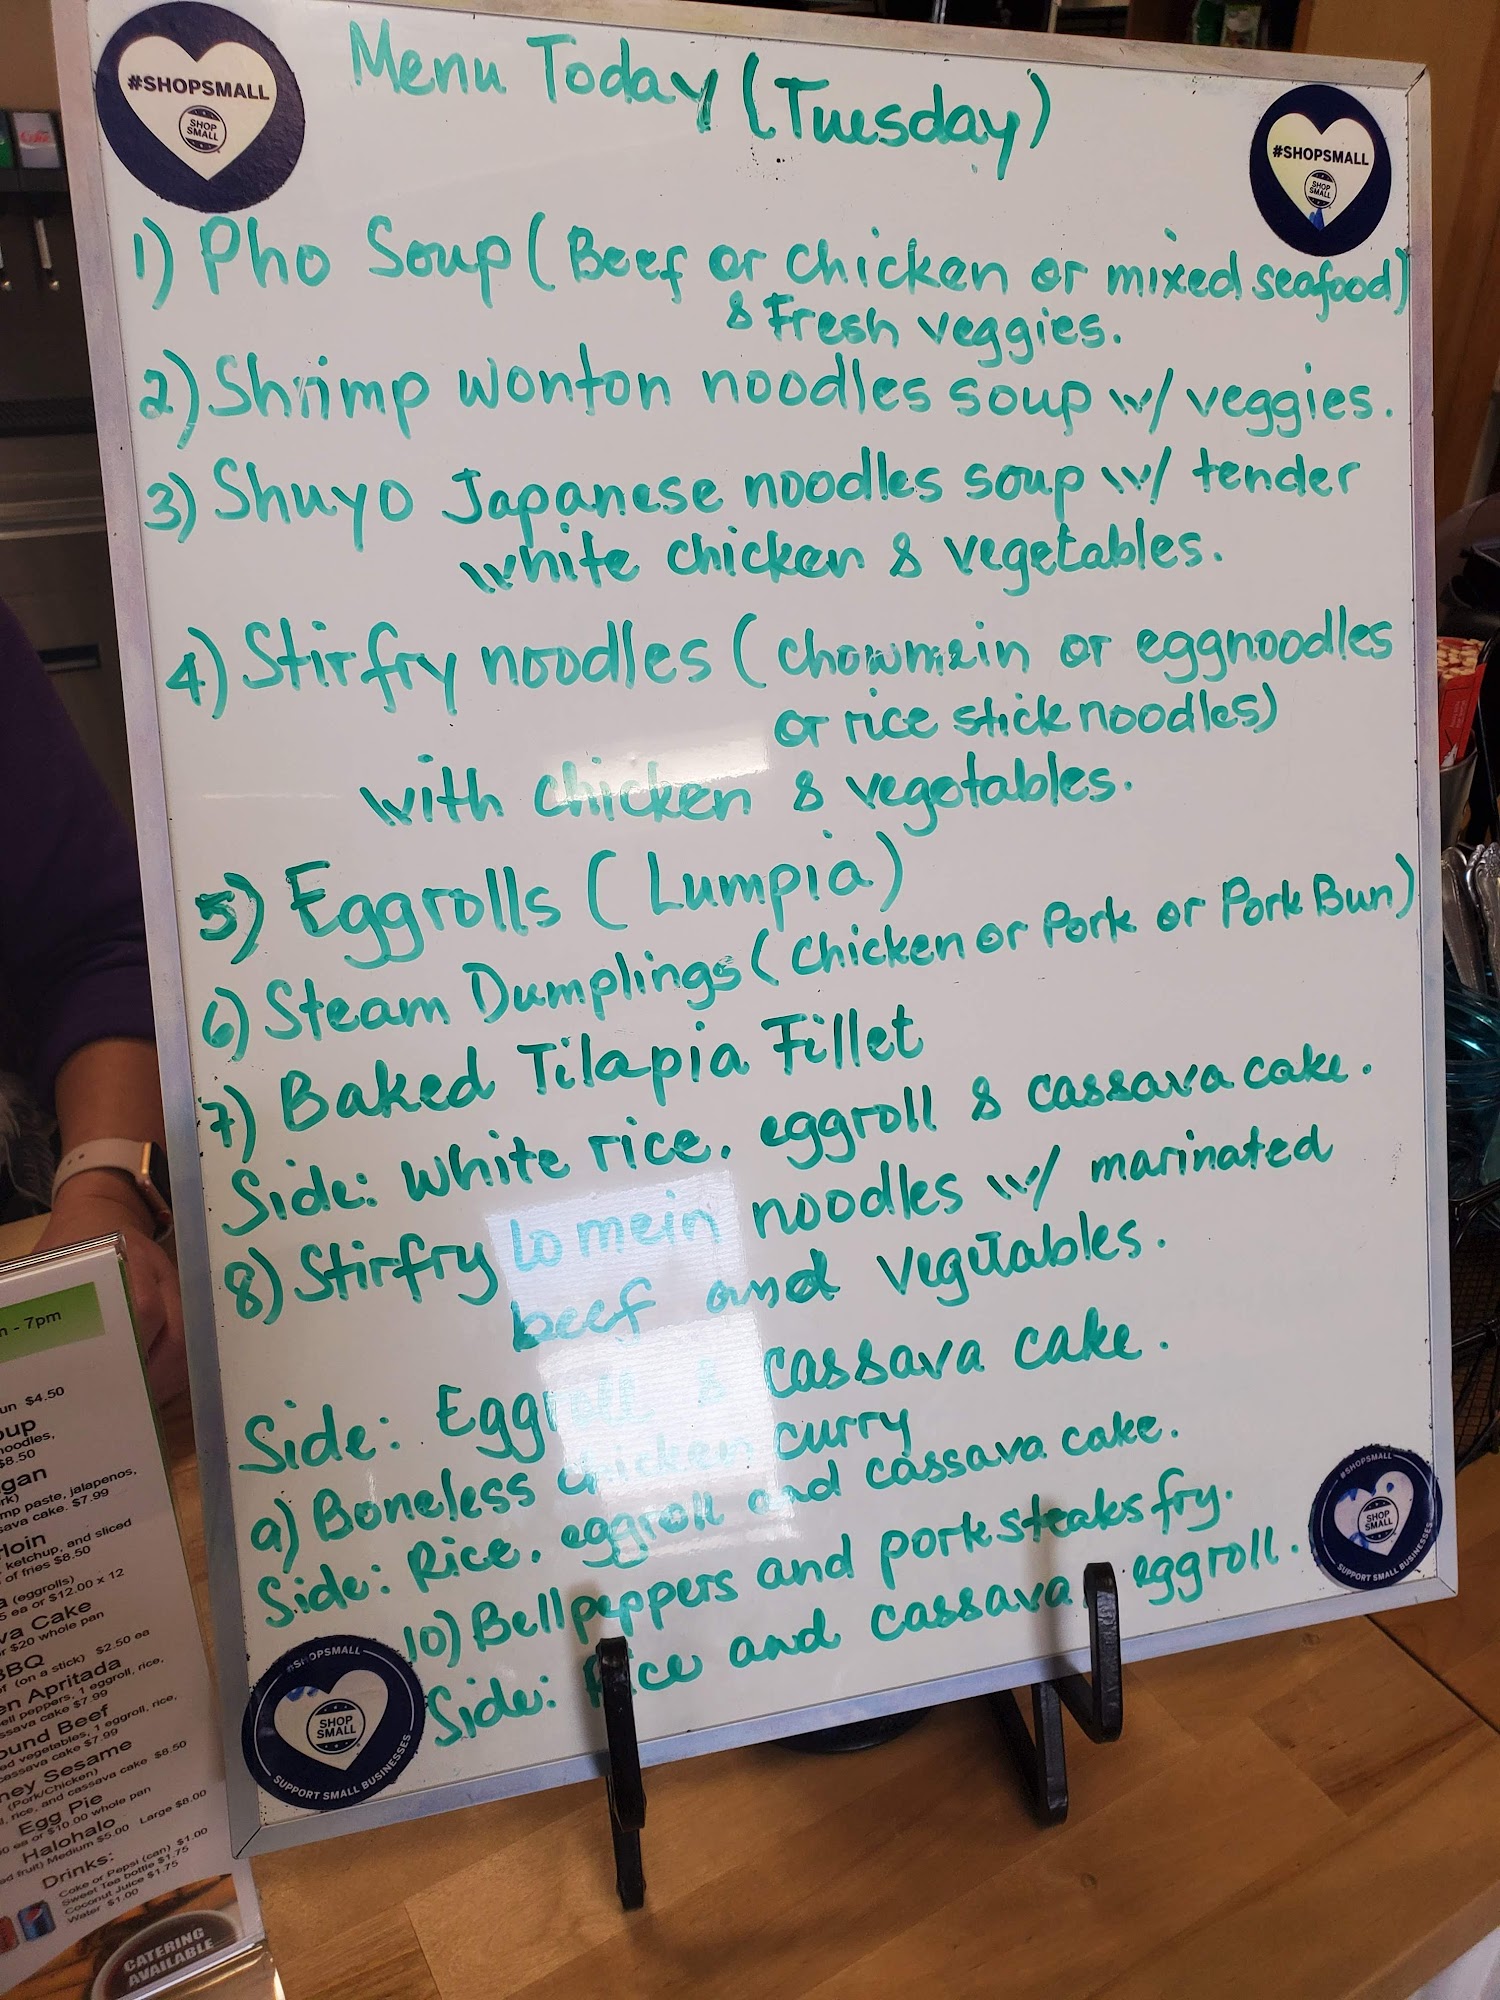 #SHOPSMALL
SHOP
SMALL
Menu Today (Tuesday)
#SHOPSMALL
SHOP
SMALL
1) Pho Soup (Beef or chicken or mixed seafood)
& Fresh veggies.
2) Shrimp wonton noodles soup w/ veggies.
3) Shuyo Japanese noodles soup w/ tender
white chicken & vegetables.
4) Stirfry noodles (chowmein or eggnoodles
or rice stick noodles)
with chicken & vegetables.
5) Eggrolls (Lumpia)
6) Steam Dumplings (chicken or Pork or Pork Bun)
7) Baked Tilapia Fillet
Side: white rice, eggroll & cassava cake.
8) Stirfry lo mein noodles w/ marinated
beef and vegetables.
Side: Eggroll & cassava cake.
9) Boneless chicken curry
Side: Rice, eggroll and cassava cake.
10) Bellpeppers and pork steaks fry.
Side: Rice and cassava, eggroll.
#SHOPSMALL
SHOP
SMALL
SUPPORT SMALL BUSINESSES
#SHOPSMALL
SHOP
SMALL
SUPPORT SMALL BUSINESSES
- 7pm
$4.50
noodles,
$8.50
paste, jalapenos,
cake. $7.99
ketchup, and sliced
of fries $8.50
(eggrolls)
ea or $12.00 x 12
Cake
$20 whole pan
BBQ
(on a stick) $2.50 ea
Apritada
peppers, 1 eggroll, rice,
cake $7.99
Beef
vegetables, 1 eggroll, rice,
cassava cake $7.99
Sesame
(Pork/Chicken)
rice, and cassava cake $8.50
Egg Pie
ea or $10.00 whole pan
Halohalo
fruit) Medium $5.00 Large $8.00
Drinks:
Coke or Pepsi (can) $1.00
Sweet Tea bottle $1.75
Coconut Juice $1.75
Water $1.00
CATERING
AVAILABLE